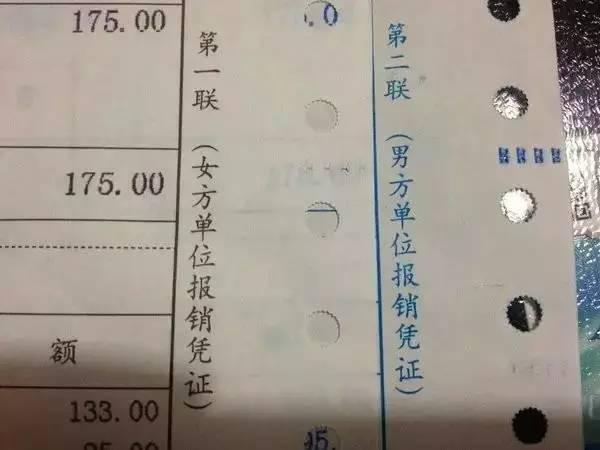 175.00
175.00
额
133.00
第一联（女方单位报销凭证）
.0
95.
第二联（男方单位报销凭证）